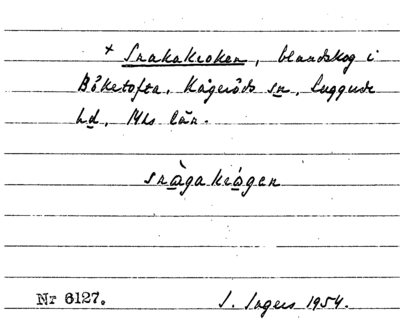 + Snakakroken, blandskog i
Böketofta, Kågeröds sn, Luggude
hd, Mhs län.
snàgakrógen
Nr 6127.
I. Ingers 1954.